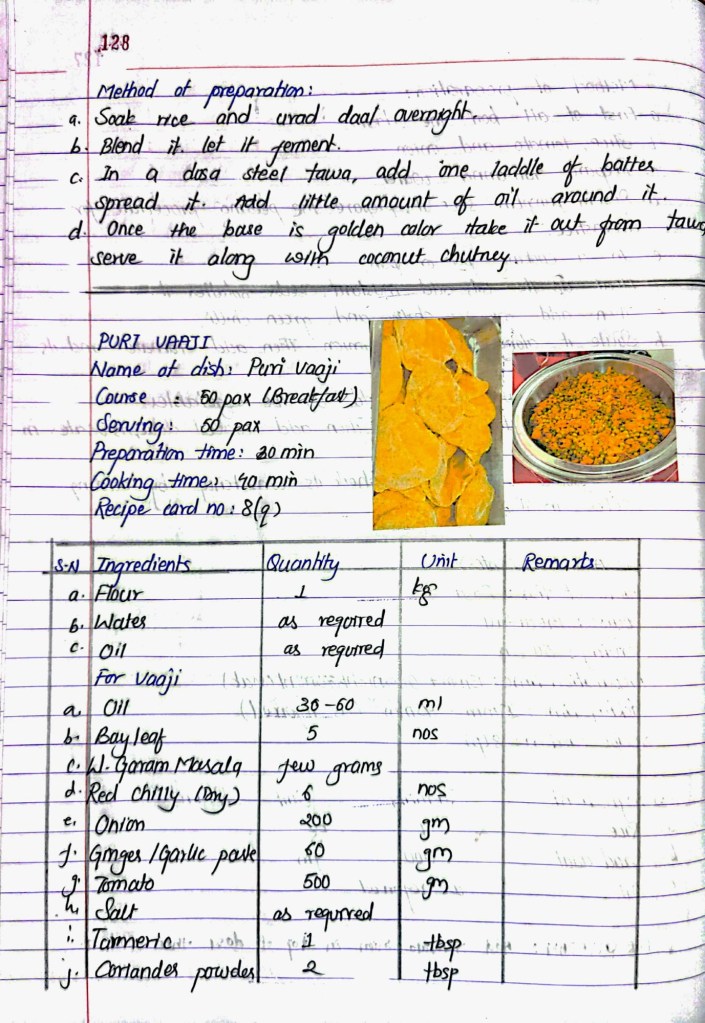 128
Method of preparation:
a. Soak rice and urad daal overnight.
b. Blend it let it ferment.
c. In a dosa steel tawa, add one laddle of batter
spread it. Add little amount of oil around it.
d. Once the base is golden color take it out from tawa
serve it along with coconut chutney.
PURI VAAJI
Name of dish: Puri vaaji
Course : 50 pax (Breakfast)
Serving: 50 pax
Preparation time: 30 min
Cooking time: 40 min
Recipe card no: 8(q)
S.N Ingredients Quantity Unit Remarks
a. Flour 1 kg
b. Water as required
c. Oil as required
For vaaji
a. Oil 30-60 ml
b. Bay leaf 5 nos
c. W. Garam Masala few grams
d. Red chilly (Dry) 6 nos
e. Onion 200 gm
f. Ginger / Garlic paste 60 gm
g. Tomato 500 gm
h. Salt as required
i. Turmeric 1 tbsp
j. Coriander powder 2 tbsp